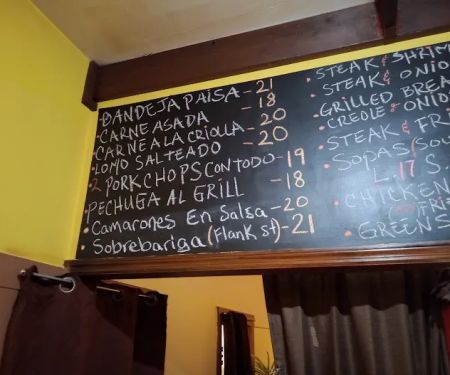 BANDEJA PAISA - 21
• CARNE ASADA - 18
• CARNE A LA CRIOLLA - 20
• LOMO SALTEADO - 20
• 2 PORK CHOPS CON TODO - 19
PECHUGA AL GRILL - 18
• Camarones En Salsa - 20
• Sobrebariga (Flank st) - 21
• STEAK & SHRIM
• STEAK & ONIO
• GRILLED BREA
CREOLE & ONIO
• STEAK & FR
• SOPAS (SOU
L. 17 S.
• CHICKEN
FRI
• GREEN S